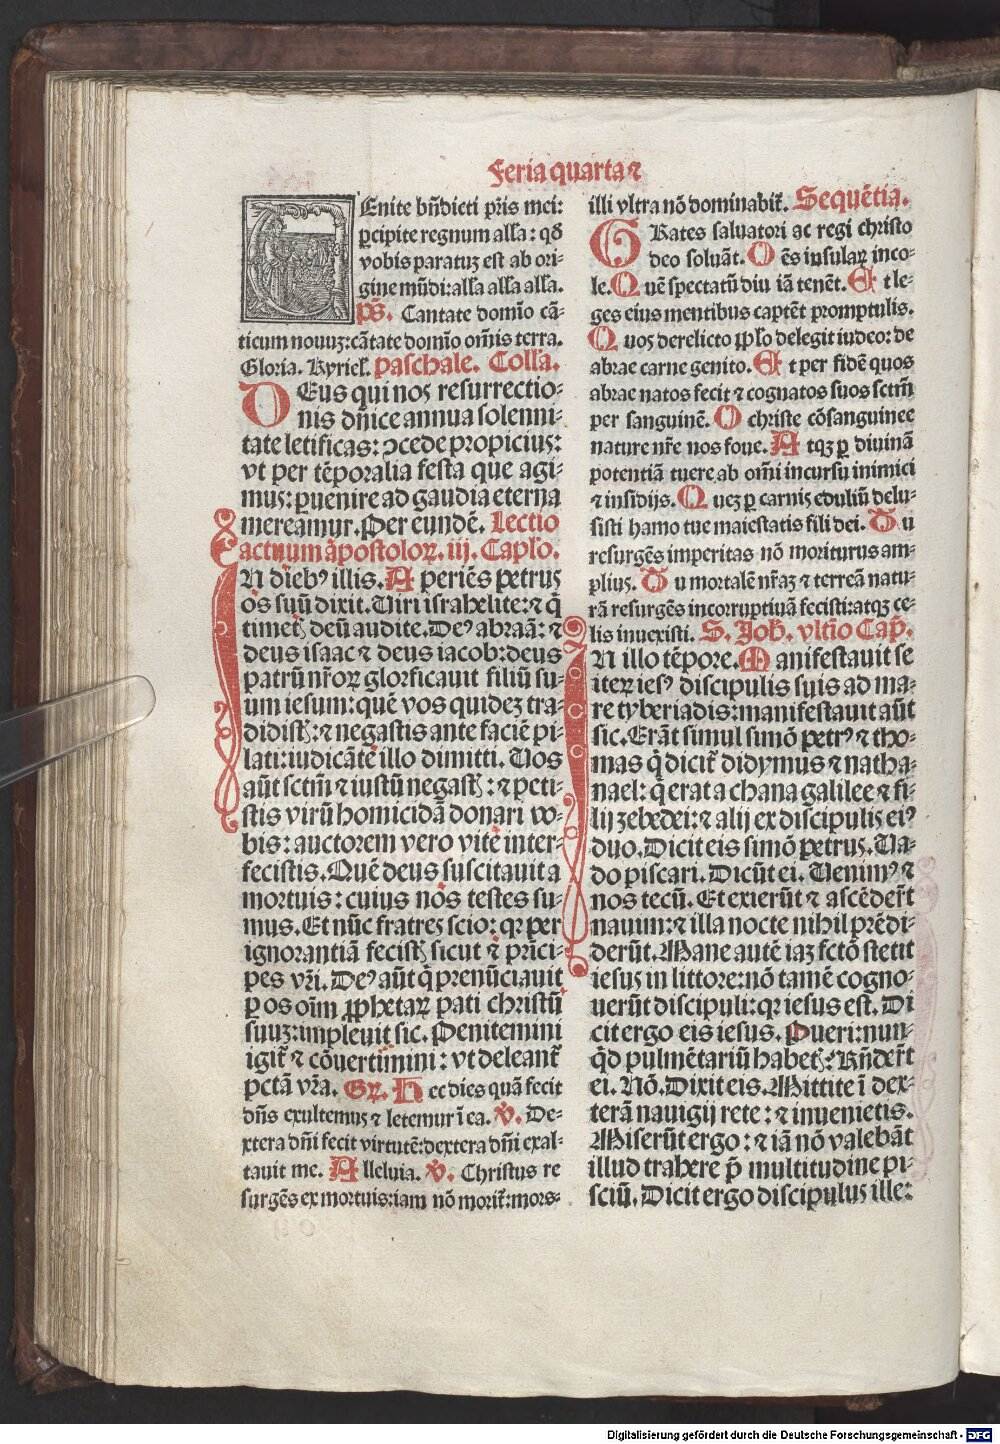 Feria quarta ⁊
VEnite bn̄dicti pr̄is mei:
ꝑcipite regnum all'a: qđ
vobis paratuz est ab ori⸗
gine mūdi: all'a all'a all'a.
ps̄. Cantate domīo cā⸗
ticum nouuz: cātate domīo om̄is terra.
Gloria. Kyriel'. paschale. Coll'a.
DEus qui nos resurrectio⸗
nis dn̄ice annua solenni⸗
tate letificas: ↄcede propicius:
vt per tēporalia festa que agi⸗
mus: ꝑuenire ad gaudia eterna
mereamur. Per eundē. Lectio
actuum apostoloꝝ. iij. Caplo.
IN dieb⁹ illis. Aperiēs petrus
os suū dixit. Uiri israhelite: ⁊ q̄
timetꝭ deū audite. De⁹ abraā: ⁊
deus isaac ⁊ deus iacob: deus
patrū nr̄oꝝ glorficauit filiū su⸗
um iesum: quē vos quidez tra⸗
didistꝭ: ⁊ negastis ante faciē pi⸗
lati: iudicāte illo dimitti. Uos
aūt sctm̄ ⁊ iustū negastꝭ: ⁊ peti⸗
stis virū homicidā donari vo⸗
bis: auctorem vero vite inter⸗
fecistis. Quē deus suscitauit a
mortuis: cuius nos testes su⸗
mus. Et nūc fratres scio: qꝛ per
ignorantiā fecistꝭ sicut ⁊ prīci⸗
pes vr̄i. De⁹ aūt q̄ prenūciauit
ꝑ os oīm ꝓphetaꝝ pati christū
suuz: impleuit sic. Penitemini
igit̄ ⁊ cōuertimini: vt deleant̄
pctā vr̄a. Gꝝ. Hec dies quā fecit
dn̄s exultemus ⁊ letemur ī ea. v̄. De⸗
xtera dn̄i fecit virtutē: dextera dn̄i exal⸗
tauit me. Alleluia. v̄. Christus re
surgēs ex mortuis: iam nō morit̄: mors⸗
illi vltra nō dominabit̄. Sequētia.
GRates saluatori ac regi christo
deo soluāt. Oēs insulaꝝ inco⸗
le. Quē spectatū diu iā tenēt. Et le⸗
ges eius mentibus captēt promptulis.
Quos derelicto ꝓplo delegit iudeo: de
abrae carne genito. Et per fidē quos
abrae natos fecit ⁊ cognatos suos sctm̄
per sanguinē. O christe cōsanguinee
nature nr̄e nos foue. Atqꝫ ꝑ diuinā
potentiā tuere ab om̄i incursu inimici
⁊ insidijs. Quez ꝑ carnis eduliū delu⸗
sisti hamo tue maiestatis fili dei. Tu
resurgēs imperitas nō moriturus am⸗
plius. Tu mortalē nr̄aꝫ ⁊ terreā natu⸗
rā resurgēs incorruptiuā fecisti: atqꝫ ce⸗
lis inuexisti. S. Joh̄. vltīo Cap̄.
IN illo tēpore. Manifestauit se
iteꝝ ies⁹ discipulis suis ad ma⸗
re tyberiadis: manifestauit aūt
sic. Erāt simul simō petr⁹ ⁊ tho⸗
mas q̄ dicit̄ didymus ⁊ natha⸗
nael: q̄ erat a chana galilee ⁊ fi⸗
lij zebedei: ⁊ alij ex discipulis ei⁹
duo. Dicit eis simō petrus. Ua⸗
do piscari. Dicūt ei. Uenim⁹ ⁊
nos tecū. Et exierūt ⁊ ascēder̄t
nauim: ⁊ illa nocte nihil prēdi⸗
derūt. Mane autē iaz fctō stetit
iesus in littore: nō tamē cogno⸗
uerūt discipuli: qꝛ iesus est. Di
cit ergo eis iesus. Pueri: nun⸗
qd̄ pulmētariū habetꝭ: Rn̄der̄t
ei. Nō. Dixit eis. Mittite ī dex⸗
terā nauigij rete: ⁊ inuenietis.
Miserūt ergo: ⁊ iā nō valebāt
illud trahere p̄ multitudine pi⸗
sciū. Dicit ergo discipulus ille:
Digitalisierung gefördert durch die Deutsche Forschungsgemeinschaft - DFG